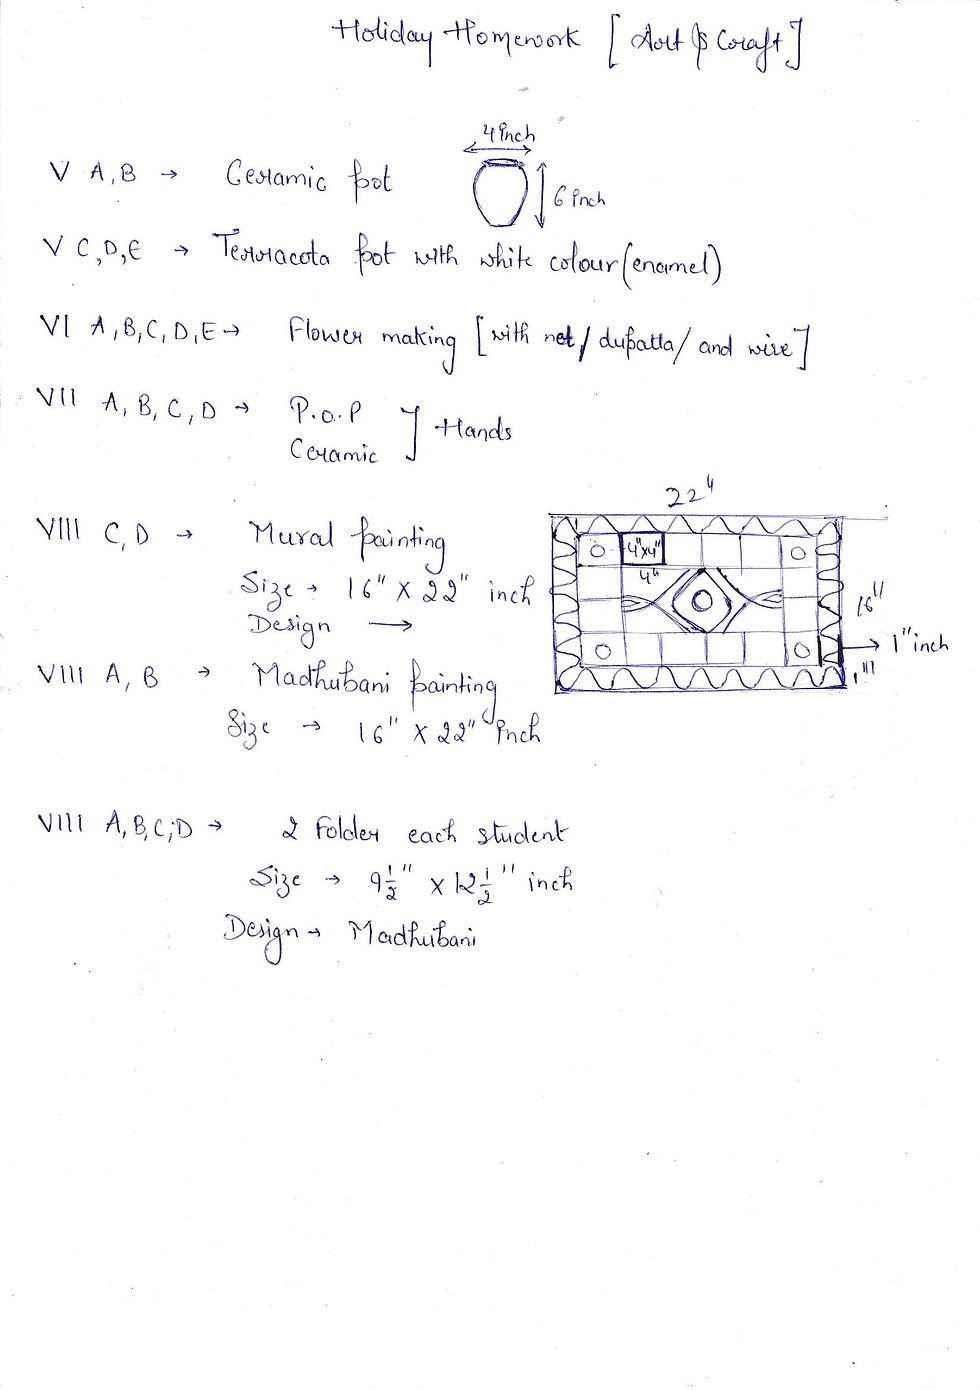 Holiday Homework [Art & Craft]
4 inch
V A, B → Ceramic pot
6 inch
V C, D, E → Terracota pot with white colour (enamel)
VI A, B, C, D, E → Flower making [with net / dupatta / and wire]
VII A, B, C, D → P.O.P
Ceramic ] Hands
22"
VIII C, D → Mural painting
4"x4"
4"
Size → 16" X 22" inch
16"
Design →
1" inch
1"
VIII A, B → Madhubani painting
Size → 16" X 22" inch
VIII A, B, C, D → 2 Folder each student
Size → 9 1/2" x 12 1/2" inch
Design → Madhubani